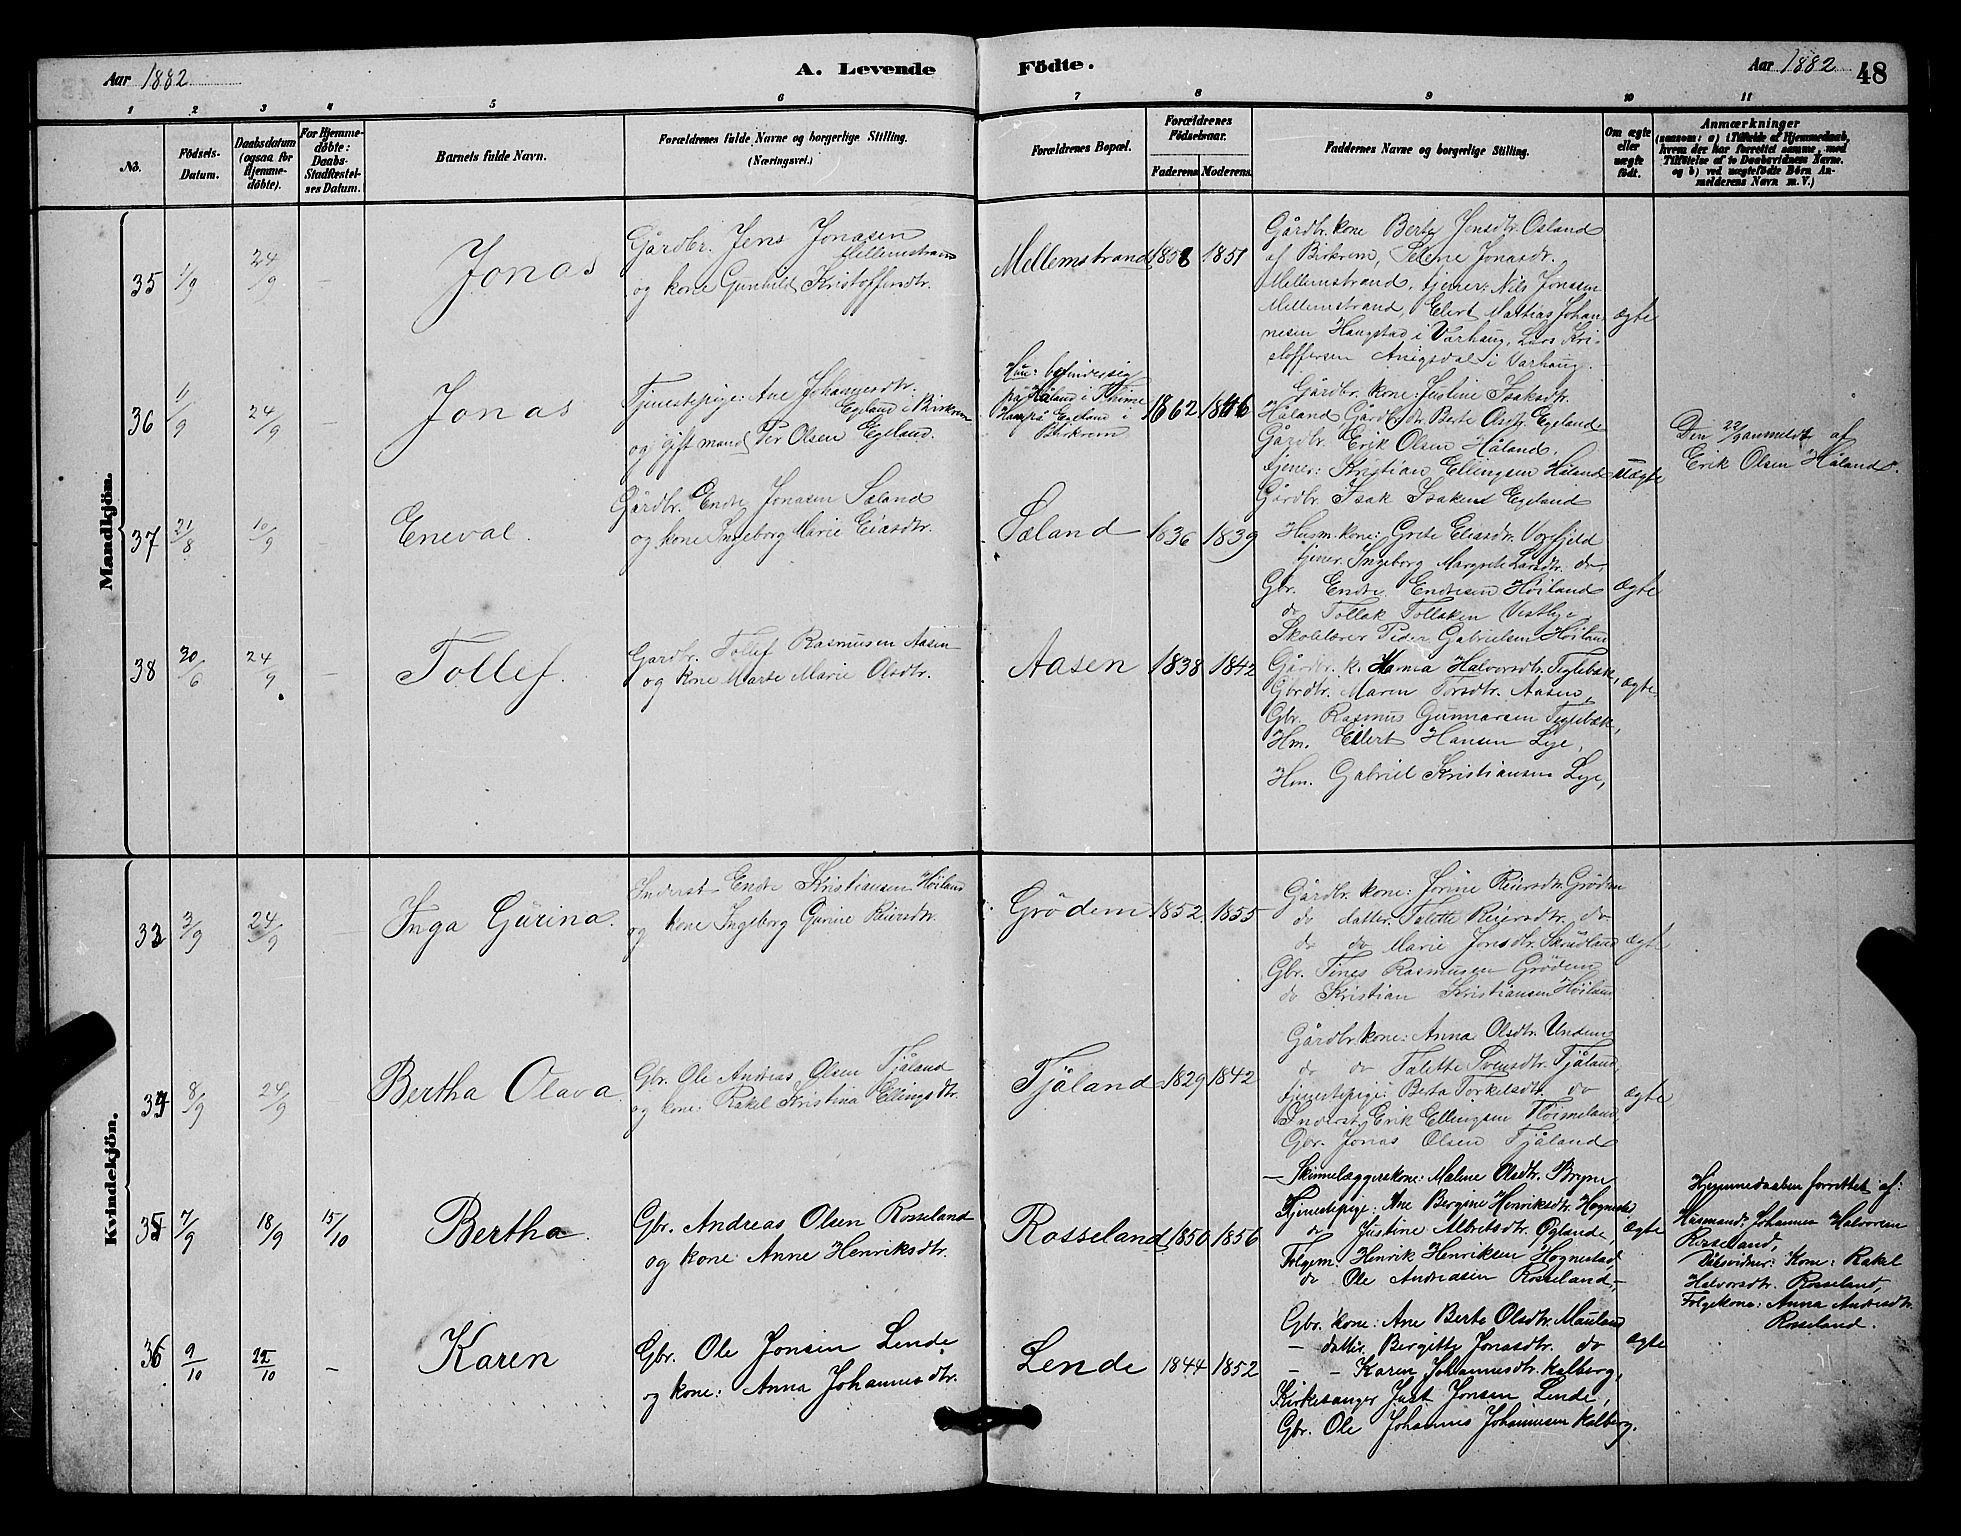 Aar 1882 A. Levende Födte. Aar 1882 48
1 2 3 4 5 6 7 8 9 10 11
No.
Födsels-Datum.
Daabsdatum (ogsaa for Hjemme-döbte).
For Hjemme-döbte: Daabs-Stadfæstel-ses Datum.
Barnets fulde Navn.
Forældrenes fulde Navne og borgerlige Stilling. (Næringsvei.)
Forældrenes Bopæl.
Forældrenes Födselsaar.
Faderens Moderens
Faddernes Navne og borgerlige Stilling.
Om ægte eller uægte födt.
Anmærkninger
(saasom: a) i Tilfælde af Hjemmedaab, hvem der har forrettet samme, med Tilföielse af to Daabsvidners Navne. og b) ved uægtefödte Börn An-melderens Navn m. V.)
Mandkjön.
35 1/9 24/9 – Jonas
Gårdbr. Jens Jonasen
Mellemstrand
og kone Gunhild Kristoffersdtr.
Mellemstrand 1858 1851
Gårdbr. kone Berte Jensdtr. Osland
af Birkrem, Selene Jonasdr.
Mellemstrand, tjener: Nils Jonsen
Mellemstrand, Elert Mathias Johan-
nesen Haugstad i Varhaug, Lars Kri-
stoffersen Anigsdal i Varhaug.
ægte
36 11/9 24/9 Jonas
Tjenestepige: Ane Johannesdtr.
Egeland i Birkrem
og gift mand Per Olsen Egeland.
Hun: befinder sig
på Håland i Thime
Han på Egeland i
Birkrem
1862 1846
Gårdbr. kone: Justine Isaksdtr.
Håland Gårdbr.dtr. Berte Egeland
Gårdbr. Erik Olsen Håland,
tjener: Kristian Ellingsen Håland
Gårdbr. Isak Isaksen Egeland
uægte
Den 22/9 anmeldt af
Erik Olsen Håland.
37 21/8 10/9 – Eneval.
Gårdbr. Endre Jonasen Sæland
og kone Ingeborg Marie Eliasdtr.
Sæland 1836 1839
Husm. kone: Grete Eliasdtr.
tjener. Ingeborg Margrete Larsdtr. do,
Gbr. Endre Endresen Höiland
do Tollak Tollaksen Vestlye
Skolelærer Peder Gabrielsen Höiland
ægte
38 30/6 24/9 – Tollef.
Gårdbr. Tollef Rasmusen Aasen
og kone Marte Marie Olsdtr.
Aasen 1838 1842
Gårdbr. k. Hanna Halvorsdtr. Teglebæk,
Gbrdtr. Maren Torsdtr. Aasen,
Gbr. Rasmus Gunnarsen Teglebæk,
Hm. Ellert Hansen Lye,
Hm. Gabriel Kristiansen Lye,
ægte
Kvindekjön.
33 3/9 24/9 – Inga Gurina.
Inderst Endre Kristiansen Höiland
og kone Ingeborg Gurine Reiersdtr.
Grödem 1852 1855
Gårdbr. kone: Jorine Reiersdtr. Grödem
do datter. Talette Reiersdtr. do
do do Marie Jonsdtr. Skredland
Gbr. Tines Rasmusen Grödem
do Kristian Kristiansen Höiland
ægte
34 8/9 24/9 – Bertha Olava
Gbr. Ole Andreas Olsen Tjåland
og kone: Rakel Kristina Ellingsdtr.
Tjåland 1829 1842
Gårdbr. kone: Anna Olsdtr. Undem
do do Talette Svensdtr. Tjåland,
tjenestepige: Berta Torkelsdtr. do
Inderst. Erik Ellingsen
Gbr. Jonas Olsen Tjåland
ægte
35 7/9 18/9 15/10 Bertha.
Gbr. Andreas Olsen Rosseland
og kone: Anne Henriksdtr.
Rosseland 1850 1856
Skinnelæggerskone: Malene Olsdtr. Bryne
Tjenestepige: Ane Bergine Henriksdtr. Hognestad
do Justine Albretsdtr. Öglænd,
Folgem. Henrik Henriksen Hognestad,
do Ole Andreasen Rosseland,–
ægte
Hjemmedaaben forrettet af:
Husmand: Johannes Halvorsen
Rosseland,
Dåbsvidner: Kone: Rakel
Halvorsdtr. Rosseland,
Folgekone: Anna Andersdtr.
Rosseland.
36 9/10 22/10 – Karen
Gbr. Ole Jonsen Lende
og kone: Anna Johannesdtr.
Lende 1844 1852
Gbr. kone: Ane Berte Olsdtr. Mauland
– datter. Bergitte Jonasdtr. do
– – Karen Johannesdtr. Kalberg,
Kirkesanger Just Jonsen Lende,
Gbr. Ole Johannes Johannesen Kalberg.
ægte